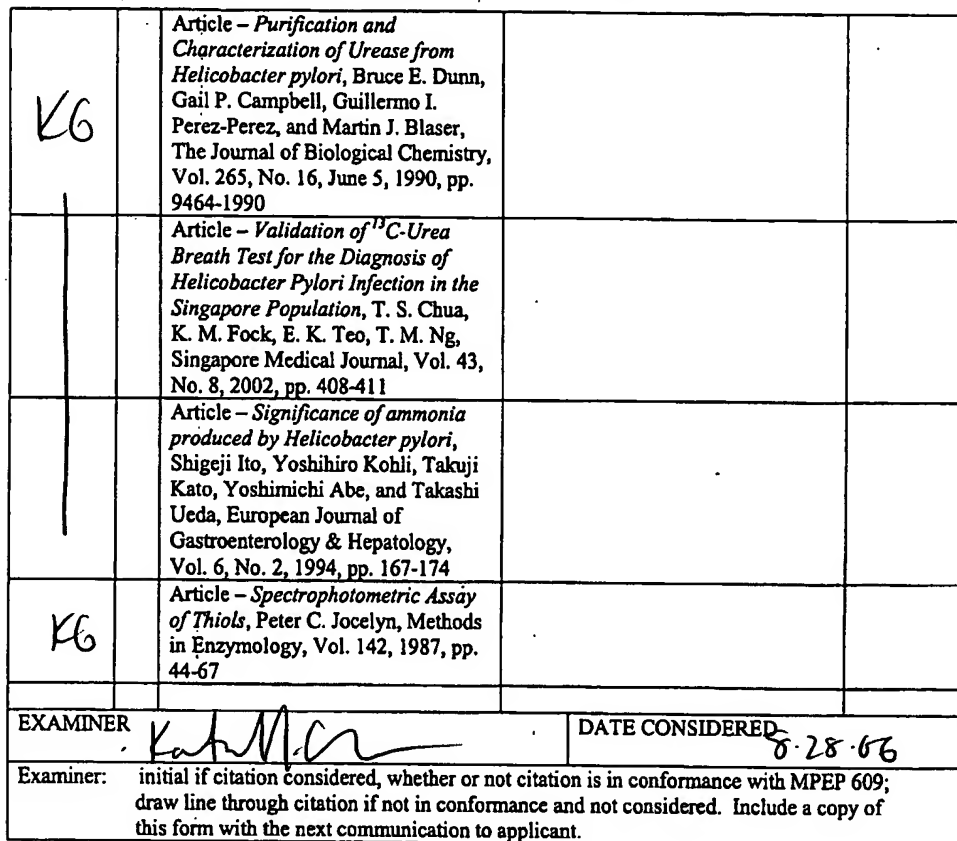 Article – Purification and
Characterization of Urease from
Helicobacter pylori, Bruce E. Dunn,
Gail P. Campbell, Guillermo I.
Perez-Perez, and Martin J. Blaser,
The Journal of Biological Chemistry,
Vol. 265, No. 16, June 5, 1990, pp.
9464-1990
KG
Article – Validation of ¹³C-Urea
Breath Test for the Diagnosis of
Helicobacter Pylori Infection in the
Singapore Population, T. S. Chua,
K. M. Fock, E. K. Teo, T. M. Ng,
Singapore Medical Journal, Vol. 43,
No. 8, 2002, pp. 408-411
Article – Significance of ammonia
produced by Helicobacter pylori,
Shigeji Ito, Yoshihiro Kohli, Takuji
Kato, Yoshimichi Abe, and Takashi
Ueda, European Journal of
Gastroenterology & Hepatology,
Vol. 6, No. 2, 1994, pp. 167-174
KG
Article – Spectrophotometric Assay
of Thiols, Peter C. Jocelyn, Methods
in Enzymology, Vol. 142, 1987, pp.
44-67
EXAMINER
DATE CONSIDERED 8.28.06
Examiner: initial if citation considered, whether or not citation is in conformance with MPEP 609;
draw line through citation if not in conformance and not considered. Include a copy of
this form with the next communication to applicant.